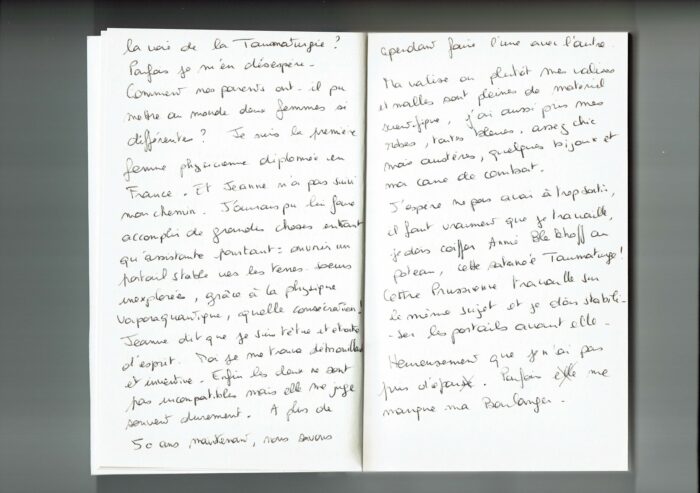 la voie de la Taumaturgie ?
Parfois je m'en désespère.
Comment nos parents ont-il pu
mettre au monde deux femmes si
différentes ? Je suis la première
femme physicienne diplomée en
France. Et Jeanne n'a pas suivi
mon chemin. J'aurais pu lui faire
accomplir de grandes choses en tant
qu'assistante pourtant : ouvrir un
portail stable vers les terres-soeurs
inexplorées, grâce à la physique
vaporaquantique, quelle consécration !
Jeanne dit que je suis têtue et étroite
d'esprit. Moi je me trouve débrouillarde
et inventive. Enfin les deux ne sont
pas incompatibles mais elle me juge
souvent durement. A plus de
50 ans maintenant, nous savons
cependant faire l'une avec l'autre.
Ma valise ou plutôt mes valises
et malles sont pleines de materiel
scientifique, j'ai aussi pris mes
robes, toutes bleues, assez chic
mais austères, quelques bijoux et
ma cane de combat.
J'espère ne pas avoir à trop sortir,
il faut vraiment que je travaille,
je dois coiffer Anna au
poteau, cette satanée Taumaturge !
Cettre Prussienne travaille sur
le même sujet et je dois stabili-
-ser les portails avant elle.
Heureusement que je n'ai pas
pris d'époux. Parfois elle me
manque ma Boulanger.